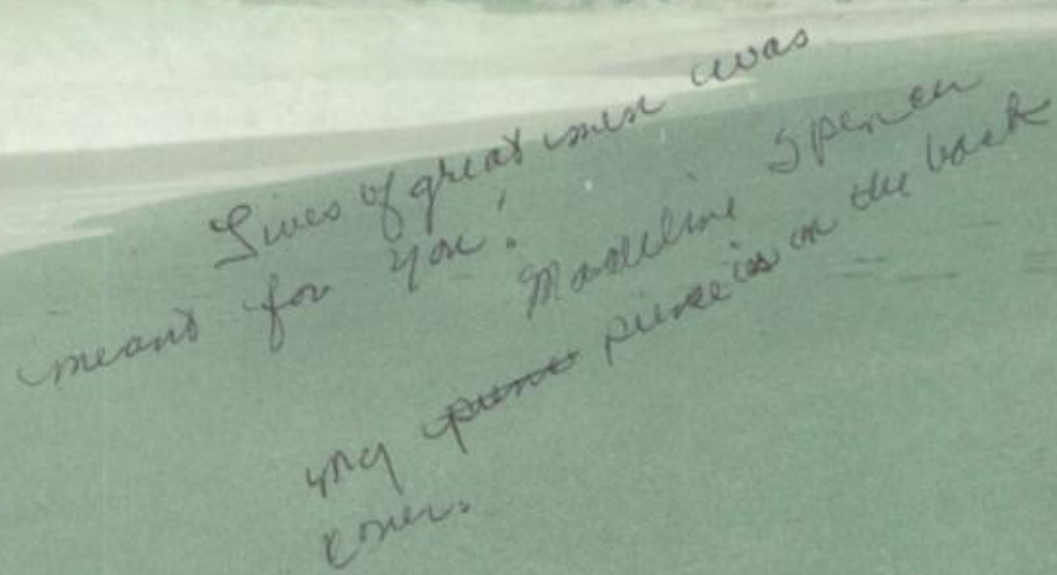 Lives of great men was
meant for you!
Madeline Spencer
my is on the back
cover.